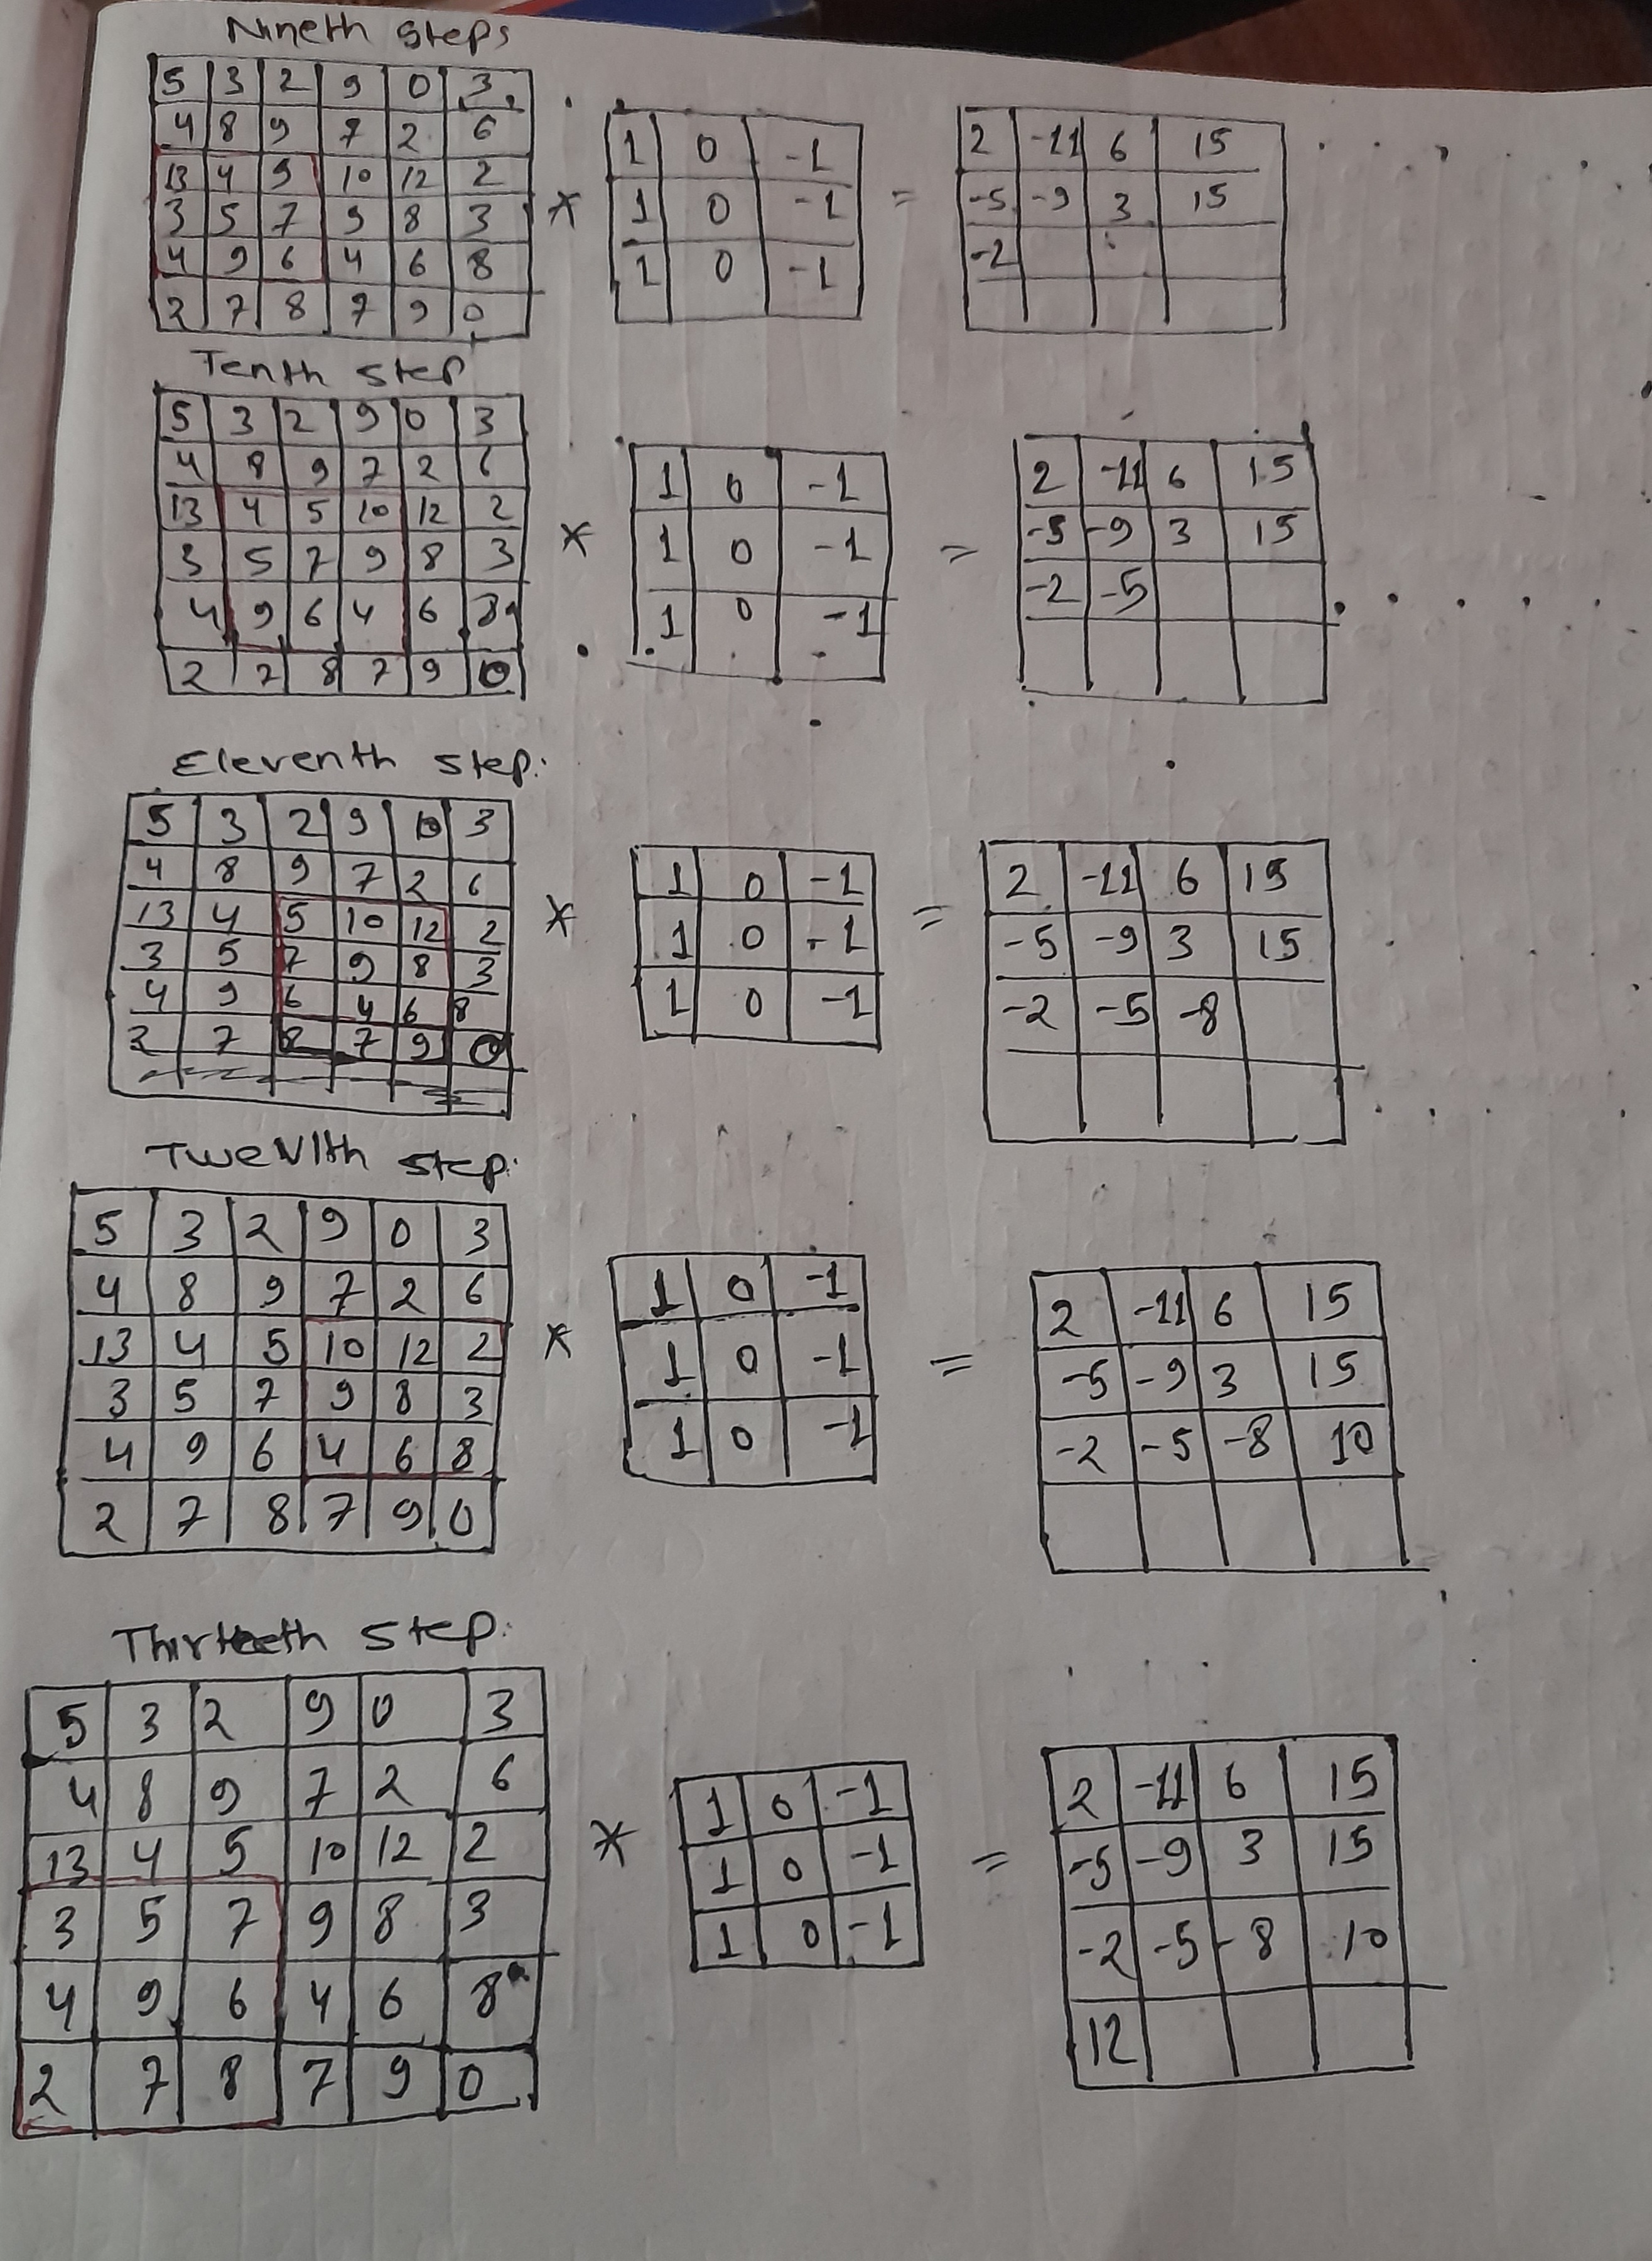 Nineth steps
5 3 2 9 0 3
4 8 9 7 2 6
13 4 5 10 12 2
3 5 7 9 8 3
4 9 6 4 6 8
2 7 8 7 9 0
*
1 0 -1
1 0 -1
1 0 -1
=
2 -11 6 15
-5 -9 3 15
-2
Tenth step
5 3 2 9 0 3
4 8 9 7 2 6
13 4 5 10 12 2
3 5 7 9 8 3
4 9 6 4 6 8
2 7 8 7 9 0
*
1 0 -1
1 0 -1
1 0 -1
=
2 -11 6 15
-5 -9 3 15
-2 -5
Eleventh step:
5 3 2 9 0 3
4 8 9 7 2 6
13 4 5 10 12 2
3 5 7 9 8 3
4 9 6 4 6 8
2 7 8 7 9 0
*
1 0 -1
1 0 -1
1 0 -1
=
2 -11 6 15
-5 -9 3 15
-2 -5 -8
Twevlth step:
5 3 2 9 0 3
4 8 9 7 2 6
13 4 5 10 12 2
3 5 7 9 8 3
4 9 6 4 6 8
2 7 8 7 9 0
*
1 0 -1
1 0 -1
1 0 -1
=
2 -11 6 15
-5 -9 3 15
-2 -5 -8 10
Thirteeth step:
5 3 2 9 0 3
4 8 9 7 2 6
13 4 5 10 12 2
3 5 7 9 8 3
4 9 6 4 6 8
2 7 8 7 9 0
*
1 0 -1
1 0 -1
1 0 -1
=
2 -11 6 15
-5 -9 3 15
-2 -5 -8 10
12